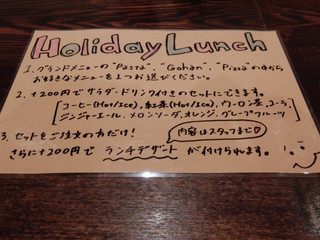 Holiday Lunch
1. グランドメニューの "Pasta", "Gohan", "Pizza" の中から
お好きなメニューを1つお選びください。
2. +200円で サラダ・ドリンク付きのセットにできます。
[コーヒー(Hot/Ice), 紅茶(Hot/Ice), ウーロン茶, コーラ,
ジンジャーエール, メロンソーダ, オレンジ, グレープフルーツ]
3. セットをご注文の方だけ!
内容はスタッフまで♡
さらに+200円で ランチデザート が付けられます。